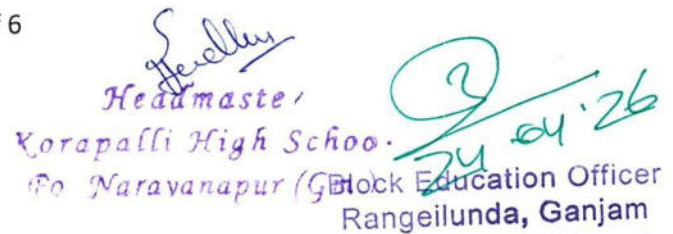 6
Headmaste
Korapalli High Schoo.
Po Narayanapur (Gm)
24.04.26
Block Education Officer
Rangeilunda, Ganjam